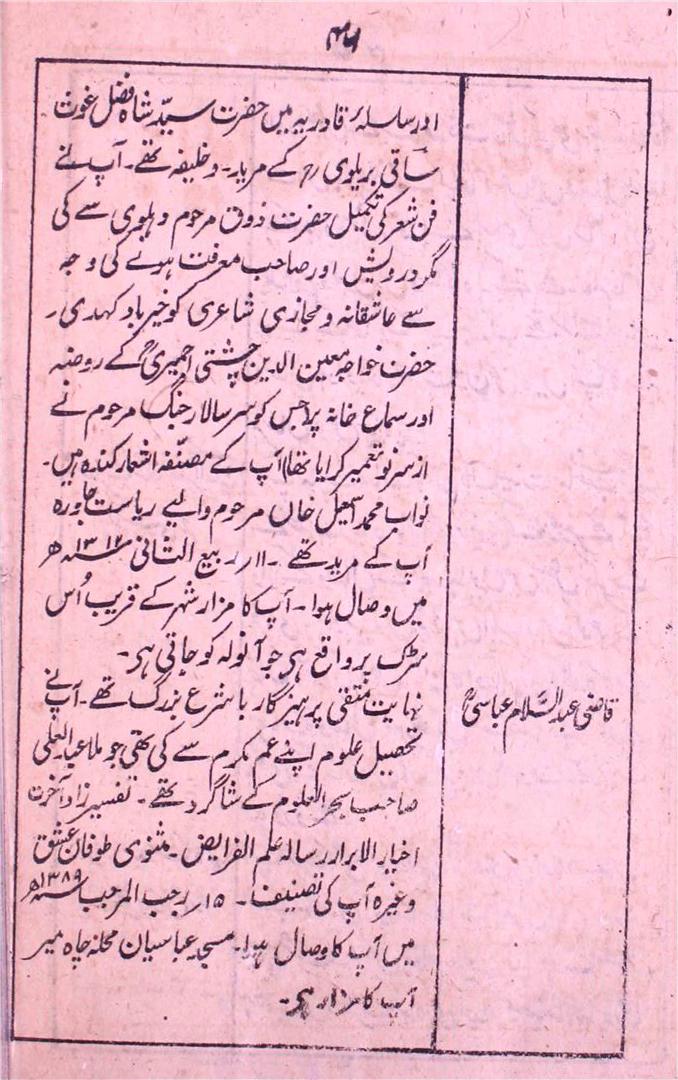 ۴۶
اور سلسلہ قادریہ میں حضرت سیّد شاہ فضل غوث
ساقی بریلوی رح کے مرید۔ و خلیفہ تھے۔ آپ نے
فن شعر کی تکمیل حضرت ذوق مرحوم دہلوی سے کی
مگر درویش اور صاحب معرفت ہونے کی وجہ
سے عاشقانہ و مجازی شاعری کو خیرباد کہدی۔
حضرت خواجہ معین الدین چشتی اجمیریؒ کے روضہ
اور سماع خانہ پر (جس کو سر سالار جنگ مرحوم نے
از سر نو تعمیر کرایا تھا) آپ کے مصنّفہ اشعار کندہ ہیں۔
نواب محمد اسمعیل خاں مرحوم والیے ریاست جاورہ
آپ کے مرید تھے ۔ ۱۱؍ ربیع الثانی ۱۳۱۷ھ
میں وصال ہوا۔ آپ کا مزار شہر کے قریب اُس
سڑک پر واقع ہی جو آنولہ کو جاتی ہی۔
قاضی عبدالسَّلام عباسیؒ
نہایت متقی پرہیزگار باشرع بزرگ تھے۔ آپنے
تحصیل علوم اپنے عم مکرم سے کی تھی جو ملا عبدالعلی
صاحب بحرالعلوم کے شاگرد تھے۔ تفسیر زاد آخرت
اخبار الابرار رسالہ علم الفرایض۔ مثنوی طوفان عشق
وغیرہ آپ کی تصنیف۔ ۱۵؍ رجب المرجب ۱۳۸۹ھ
میں آپ کا وصال ہوا۔ مسجد عباسیان محلہ چاہ میر
آپ کا مزار ہی۔